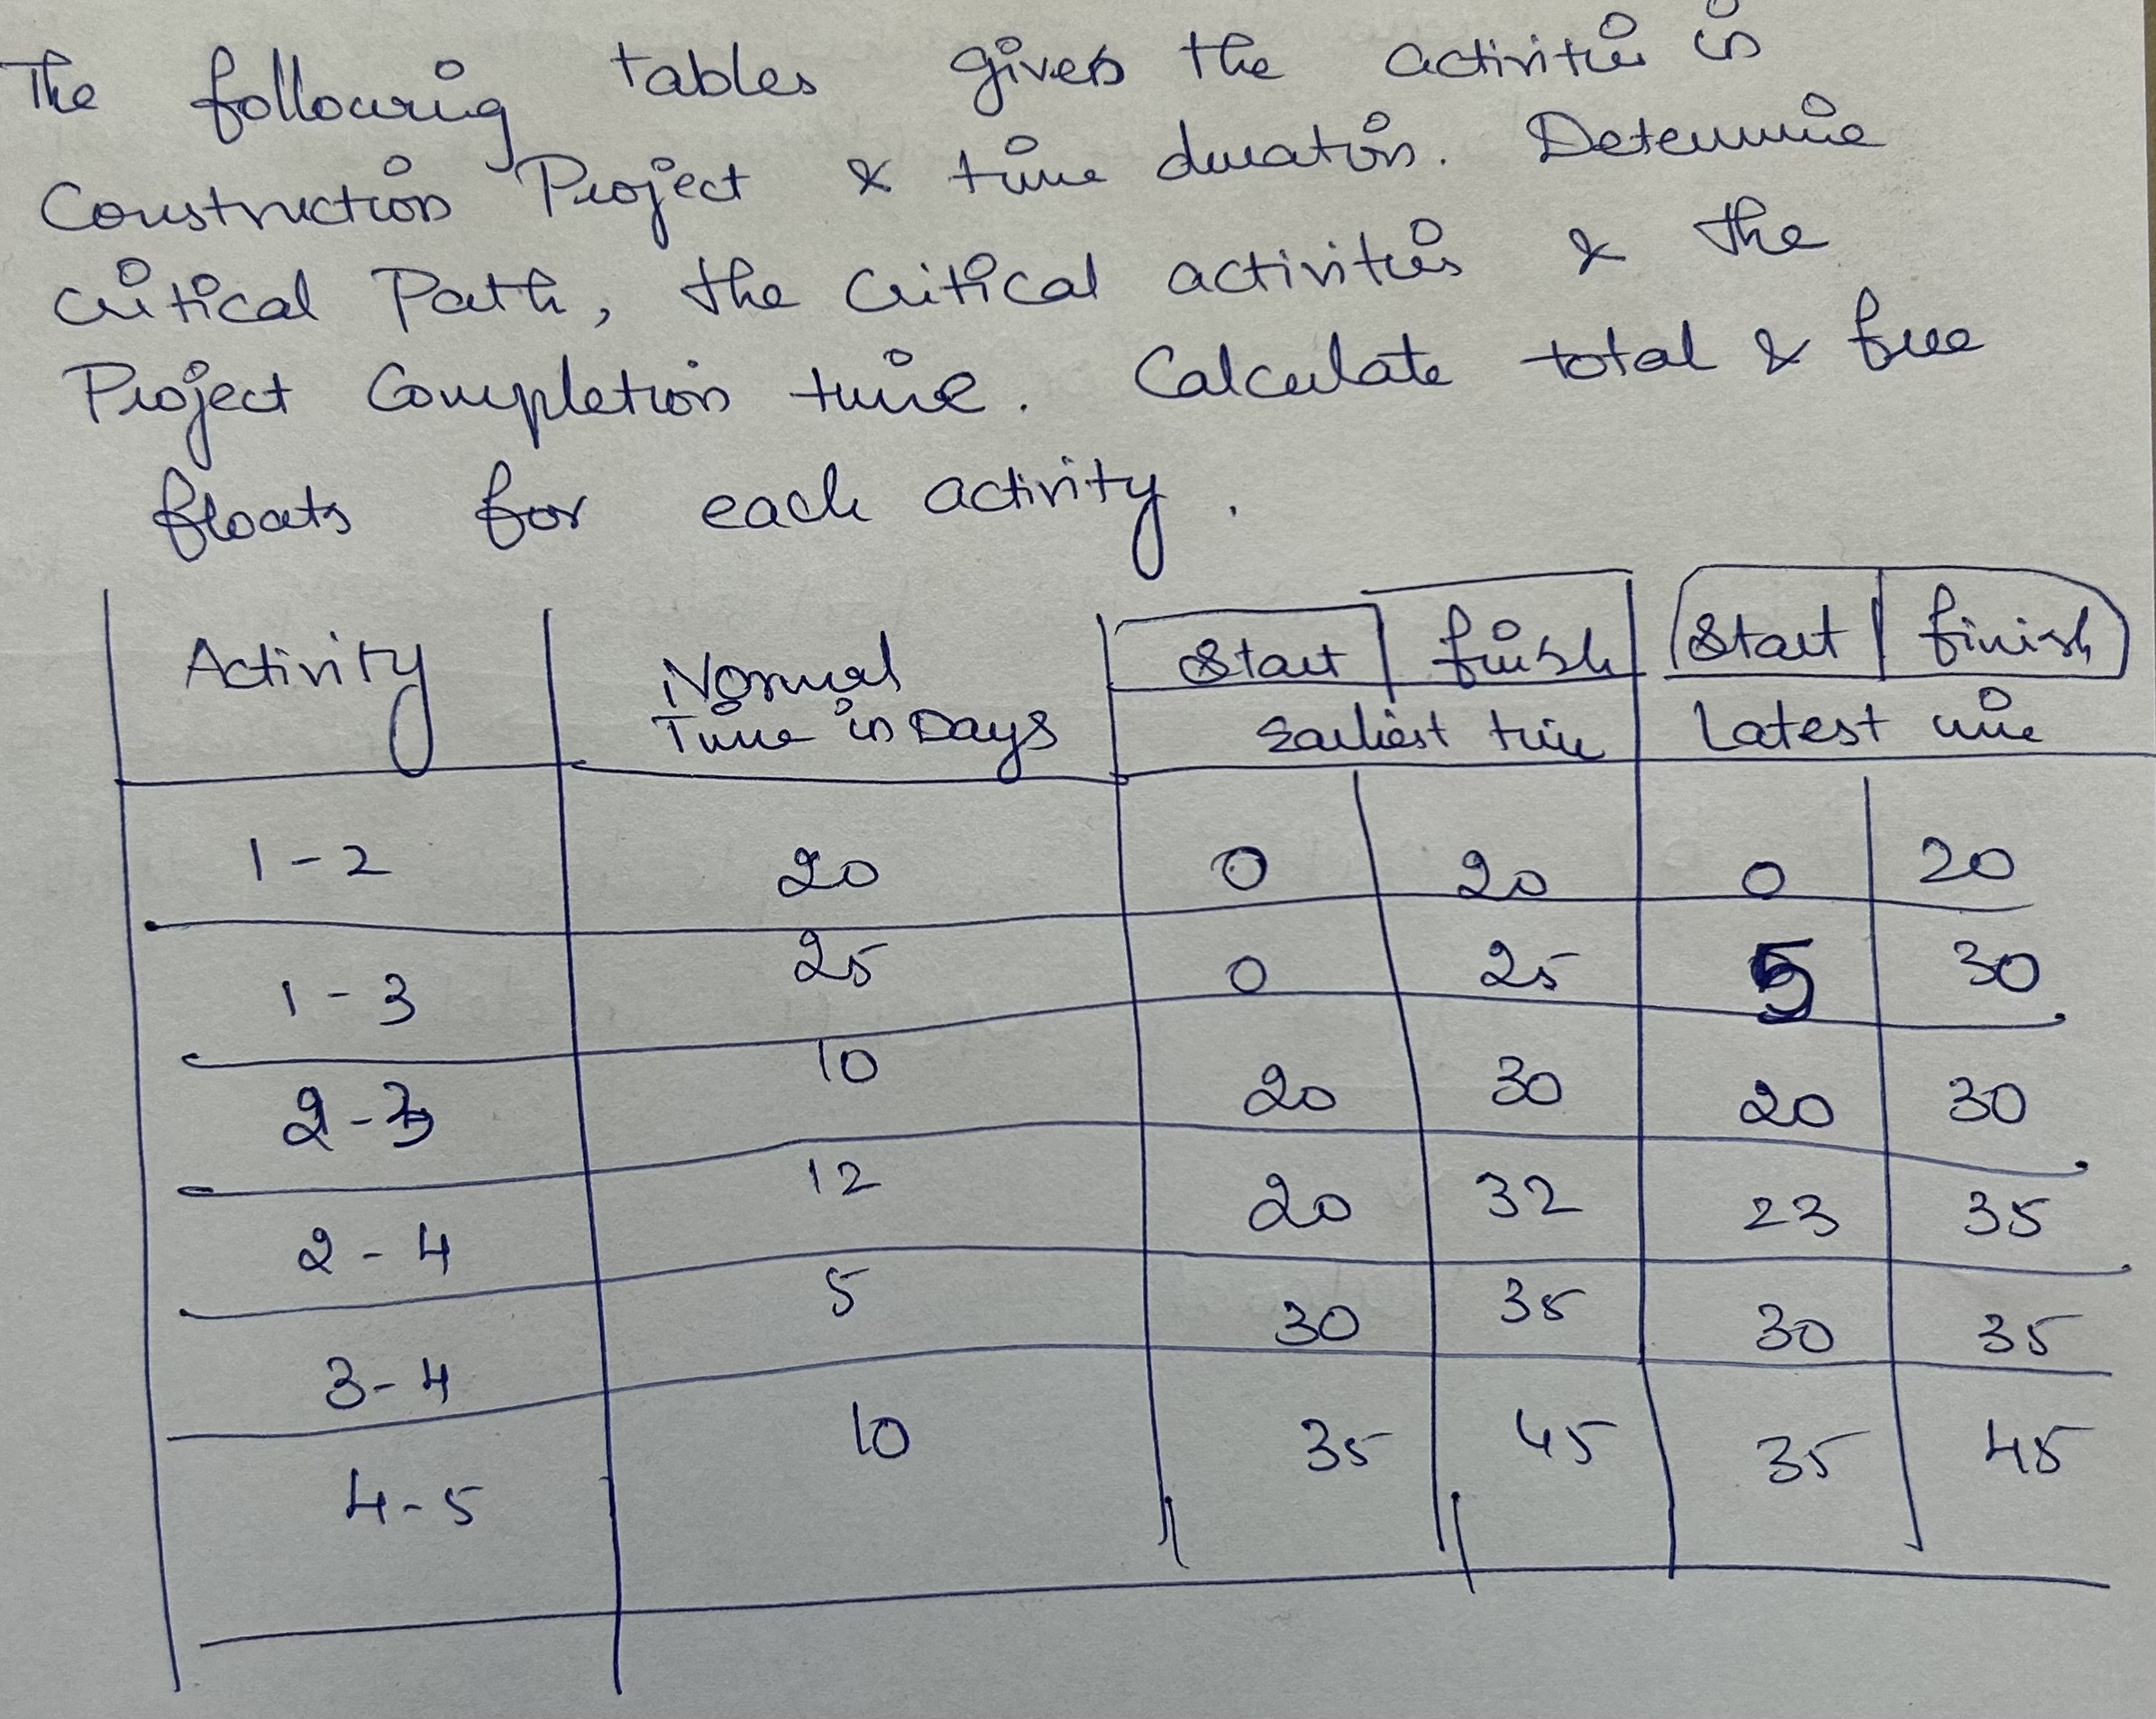 The following tables gives the activities in
Construction Project & time duration. Determine
critical Path, the critical activities & the
Project Completion time. Calculate total & free
floats for each activity.
Activity Normal Start finish Start finish
Time in Days Earliest time Latest time
1-2 20 0 20 0 20
1-3 25 0 25 5 30
2-3 10 20 30 20 30
2-4 12 20 32 23 35
3-4 5 30 35 30 35
4-5 10 35 45 35 45